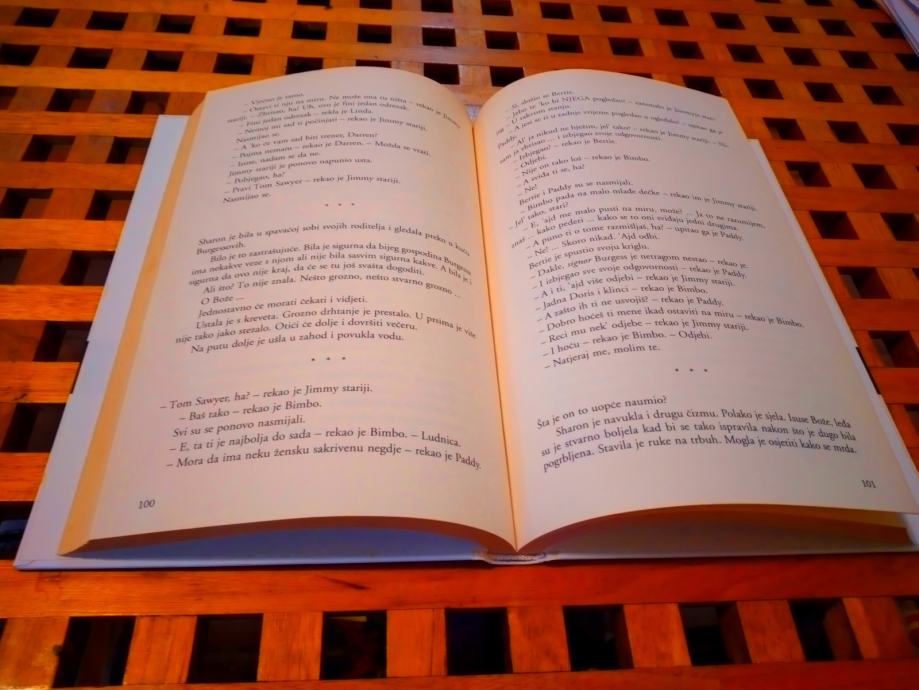 – Vjerojatno je tamo.
– Ostavi ti nju na miru. Ne može ona tu ništa – rekao je Jimmy
stariji. – Zbrisao, ha? Uh, ovo je fini jedan odrezak.
– Fini jedan odrezak – rekla je Linda.
– Nemoj mi sad ti počinjati – rekao je Jimmy stariji.
Nasmijao se.
– A 'ko će vam sad biti trener, Darren?
– Pojma nemam – rekao je Darren. – Možda se vrati.
– Isuse, nadam se da ne.
Jimmy stariji je ponovo napunio usta.
– Pobjegao, ha?
– Pravi Tom Sawyer – rekao je Jimmy stariji.
Nasmijao se.
* * *
Sharon je bila u spavaćoj sobi svojih roditelja i gledala preko u kuću
Burgessovih.
Bilo je to zastrašujuće. Bila je sigurna da bijeg gospodina Burgessa
ima nekakve veze s njom ali nije bila sasvim sigurna kakve. A bila je i
sigurna da ovo nije kraj, da će se tu još svašta dogoditi.
Ali što? To nije znala. Nešto grozno, nešto stvarno grozno ...
O Bože ...
Jednostavno će morati čekati i vidjeti.
Ustala je s kreveta. Grozno drhtanje je prestalo. U prsima je više
nije tako jako stezalo. Otići će dolje i dovršiti večeru.
Na putu dolje je ušla u zahod i povukla vodu.
* * *
– Tom Sawyer, ha? – rekao je Jimmy stariji.
– Baš tako – rekao je Bimbo.
Svi su se ponovo nasmijali.
– E, ta ti je najbolja do sada – rekao je Bimbo. – Ludnica.
– Mora da ima neku žensku sakrivenu negdje – rekao je Paddy.
100
– Si, složio se Bertie.
– Jebo te, 'ko bi NJEGA pogledao? – zanimalo je Jimmyja starijeg.
– U zadnje vrijeme pogledao u ogledalo? – upitao ga je
Paddy.
– A! ja nikud ne bježim, jel' tako? – rekao je Jimmy stariji. – Ni-
sam ja zbrisao ... i izbjegao svoje odgovornosti.
– Izbjegao? – rekao je Bertie.
– Odjebi.
– Nije on tako loš – rekao je Bimbo.
– A sviđa ti se, ha?
– Ne!
Bertie i Paddy su se nasmijali.
– Bimbo pada na malo mlađe dečke – rekao im je Jimmy stariji.
– Jel' tako, stari?
– E, 'ajd me malo pusti na miru, može? ... Ja to ne razumijem,
znaš – kako pederi ... kako se to oni sviđaju jedni drugima.
– A puno ti o tome razmišljaš, ha? – upitao ga je Paddy.
– Ne! – Skoro nikad. 'Ajd odbi.
Bertie je spustio svoju kriglu.
– Dakle, signor Burgess je netragom nestao – rekao je.
– I izbjegao sve svoje odgovornosti – rekao je Paddy.
– A i ti, 'ajd više odjebi – rekao je Jimmy stariji.
– Jadna Doris i klinci – rekao je Bimbo.
– A zašto ih ti ne usvojiš? – rekao je Paddy.
– Dobro hoćeš ti mene ikad ostaviti na miru – rekao je Bimbo.
– Reci mu nek' odjebe – rekao je Jimmy stariji.
– I hoću – rekao je Bimbo. – Odjebi.
– Natjeraj me, molim te.
* * *
Šta je on to uopće naumio?
Sharon je navukla i drugu čizmu. Polako je sjela. Isuse Bože, leđa
su je stvarno boljela kad bi se tako ispravila nakon što je dugo bila
pogrbljena. Stavila je ruke na trbuh. Mogla je osjetiti kako se mrda.
101